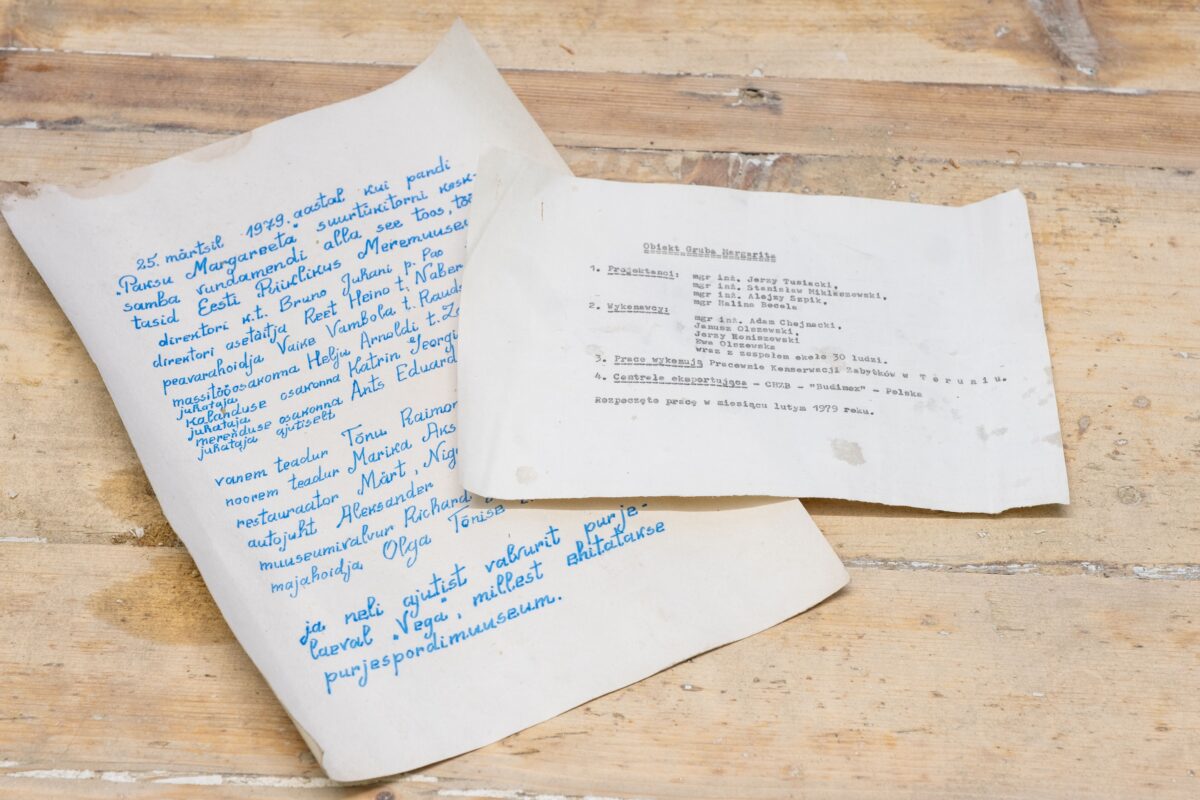 25. märtsil 1979. aastal kui pandi
"Paksu Margareeta" suurtükitorni kesk-
samba vundamendi alla see toos, töö-
tasid Eesti Riiklikus Meremuuseu
direktori k.t. Bruno Juhani p. Pao
direktori asetäitja Reet Heino t. Naber
peavarahoidja Vaike Vambola t. Rauds
massitööosakonna Helju Arnoldi t. Z
juhataja
kalanduse osakonna Katrin Georgi
juhataja
merenduse osakonna Ants Eduard
juhataja ajutiselt
vanem teadur Tõnu Raimon
noorem teadur Marika Aks
restauraator Märt, Nig
autojuht Aleksander
muuseumivalvur Richard
majahoidja Olga Tõnise
ja neli ajutist valvurit purje-
laeval "Vega", millest ehitatakse
purjespordimuuseum.
Obiekt Gruba Margarita
1. Projektanci: mgr inż. Jerzy Tusiacki,
mgr inż. Stanisław Mikłaszewski,
mgr inż. Alojzy Szpik,
mgr Halina Becela
2. Wykonawcy: mgr inż. Adam Chojnacki,
Janusz Olszewski,
Jerzy Koniszewski
Ewa Olszewska
wraz z zespołem około 30 ludzi.
3. Prace wykonują Pracownie Konserwacji Zabytków w T o r u n i u.
4. Centrala eksportująca - CHZB - "Budimex" - Polska
Rozpoczęto pracę w miesiącu lutym 1979 roku.